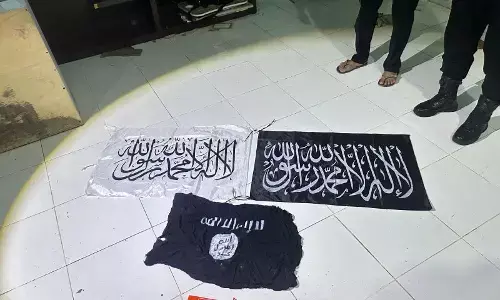 لا إله إلا الله محمد رسول الله
لا إله إلا الله محمد رسول الله
لا إله إلا الله
الله
رسول
محمد